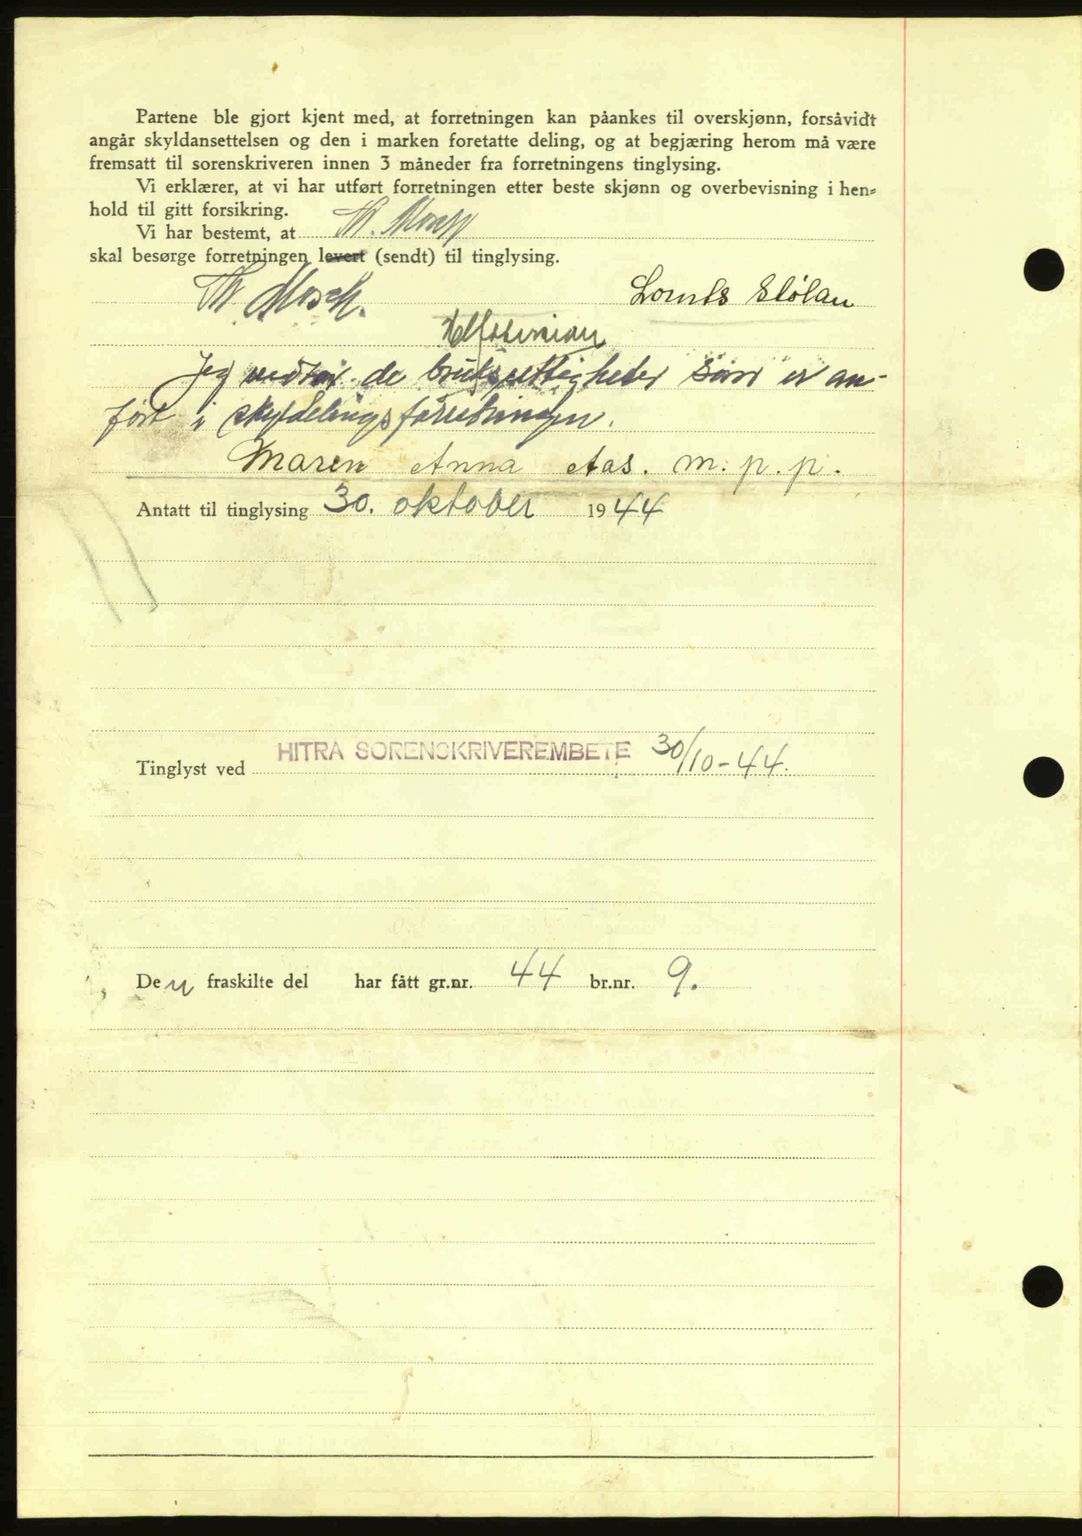 Partene ble gjort kjent med, at forretningen kan påankes til overskjønn, forsåvidt
angår skyldansettelsen og den i marken foretatte deling, og at begjæring herom må være
fremsatt til sorenskriveren innen 3 måneder fra forretningens tinglysing.
Vi erklærer, at vi har utført forretningen etter beste skjønn og overbevisning i hen=
hold til gitt forsikring.
Vi har bestemt, at
skal besørge forretningen levert (sendt) til tinglysing.
Stølan
Jeg vedtar de bruksrettigheter som er an-
ført i skyldelingsforretningen.
Maren Anna Aas. m. p. p.
Antatt til tinglysing 30. oktober 1944
Tinglyst ved HITRA SORENSKRIVEREMBETE 30/10-44.
Den fraskilte del har fått gr.nr. 44 br.nr. 9.